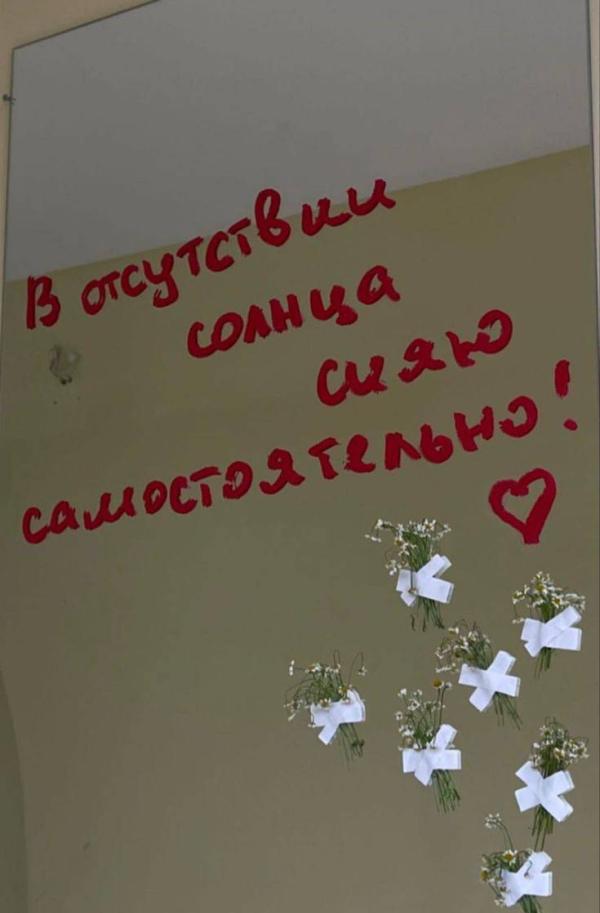 В отсутствии
солнца
сияю
самостоятельно!